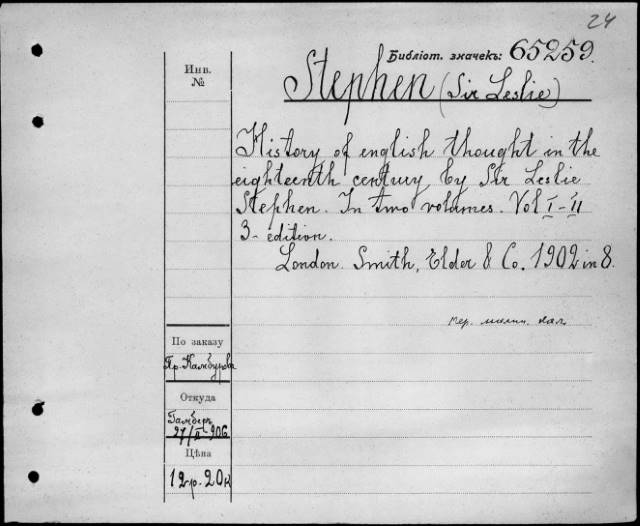 24
Библіот. значекъ: 65259.
Инв.
№
Stephen (Sir Leslie)
History of english thought in the
eighteenth century by Sir Leslie
Stephen. In two volumes. Vol I-II
3- edition.
London. Smith, Elder & Co. 1902 in 8.
По заказу
Пр. Камбурова
Откуда
27/II 906
Цѣна
12 р. 20 к